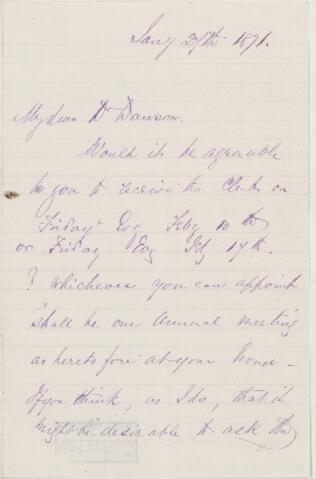 Jany 30th 1871.
My dear Dr Dawson.
Would it be agreeable
to you to receive the Club on
Friday Evg Feby 10th
or Friday Evg Feby 17th.
? Whichever you can appoint
shall be our Annual meeting
as heretofore at your house -
If you think, as I do, that it
might be desirable to ask the